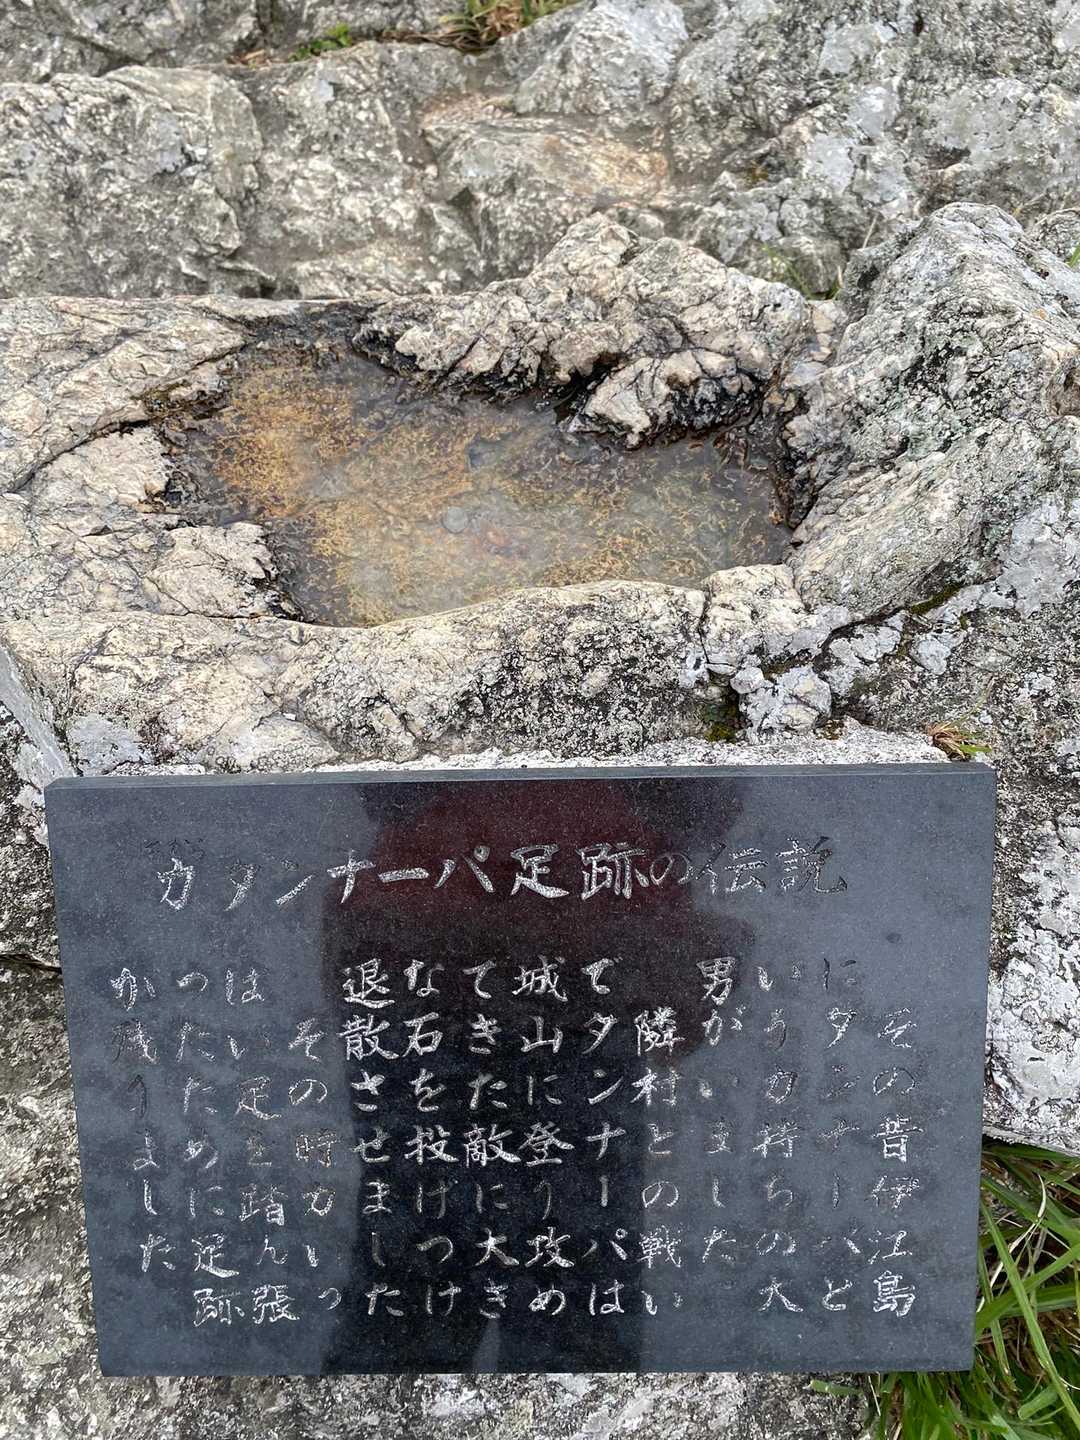 力タンナーパ足跡の伝説
その昔伊江島
にタンナーパと
いう力持ちの大
男がいました
隣村との戦い
でタンナーパは
城山に登り攻め
てきた敵に大き
な石を投げつけ
退散させました
その時力いっ
ぱい足を踏ん張
ったために足跡
が残りました